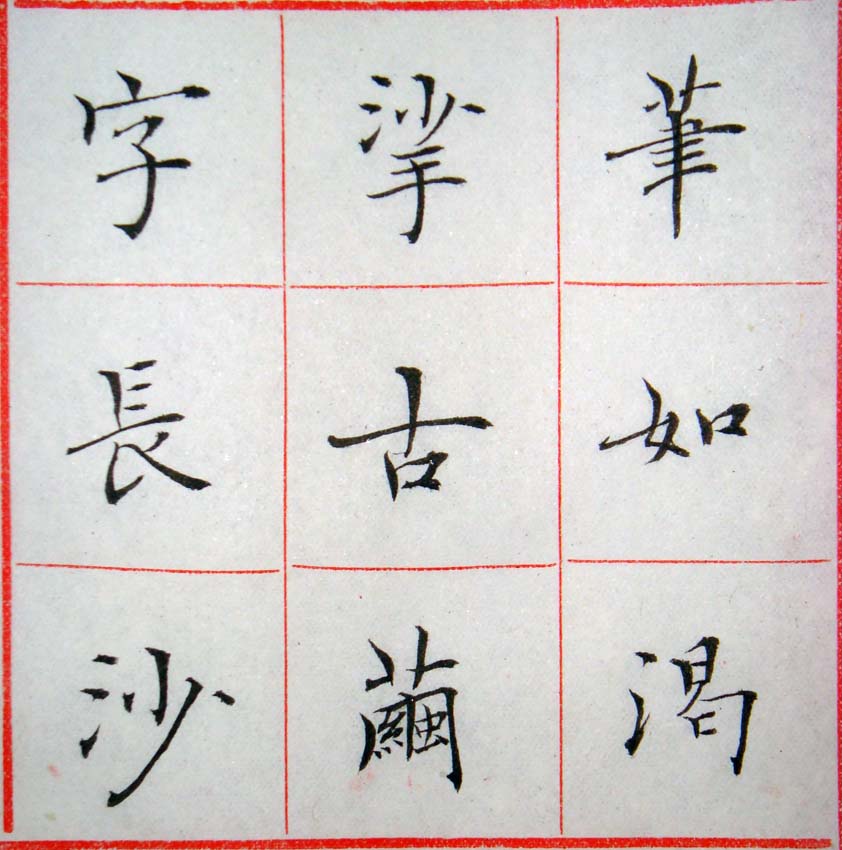 筆如渴
挲古繭
字長沙